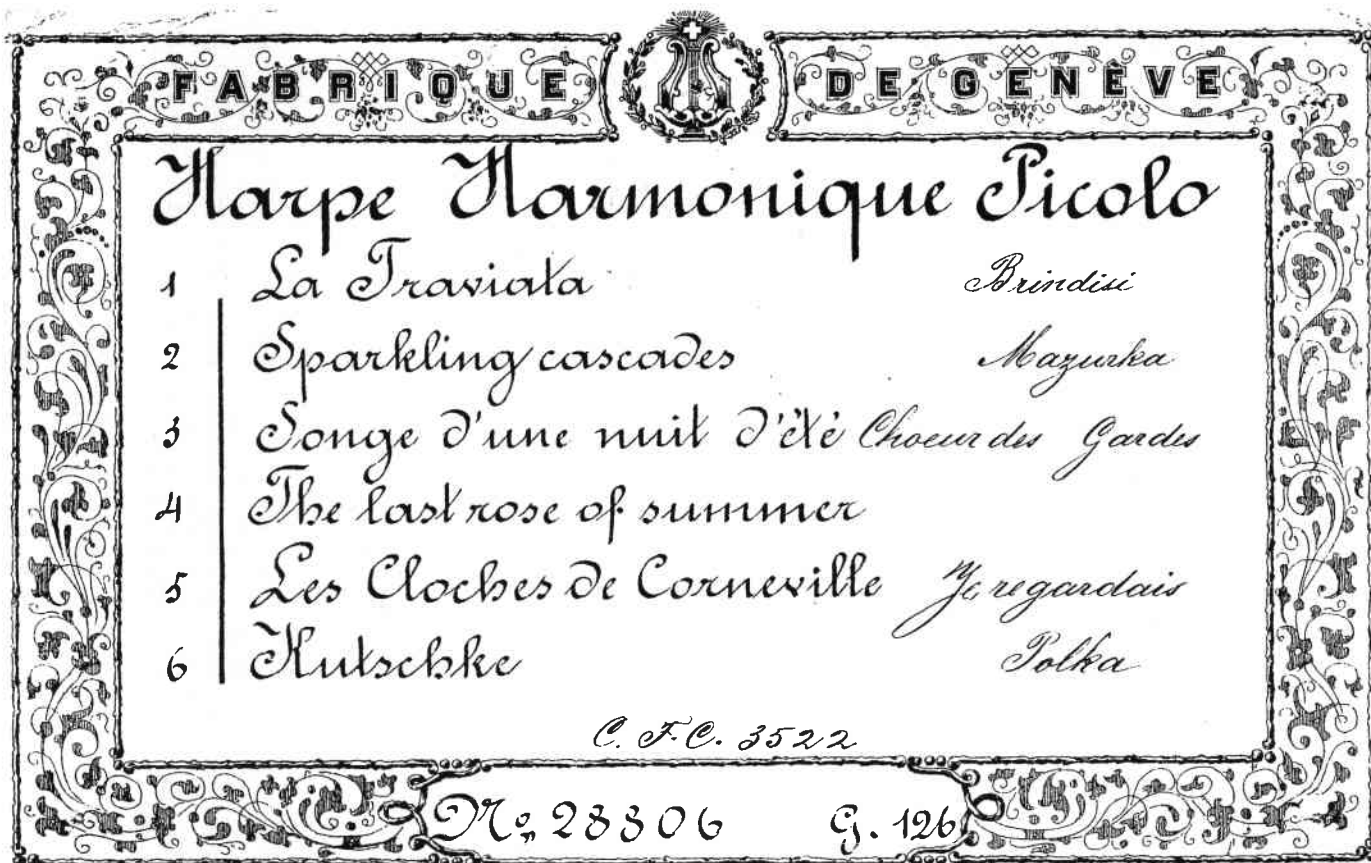 FABRIQUE DE GENÈVE
Harpe Harmonique Picolo
1 La Traviata Brindisi
2 Sparkling cascades Mazurka
3 Songe d'une nuit d'été Choeur des Gardes
4 The last rose of summer
5 Les Cloches de Corneville Je regardais
6 Kutschke Polka
C. F. C. 3522
No 28806 G. 126